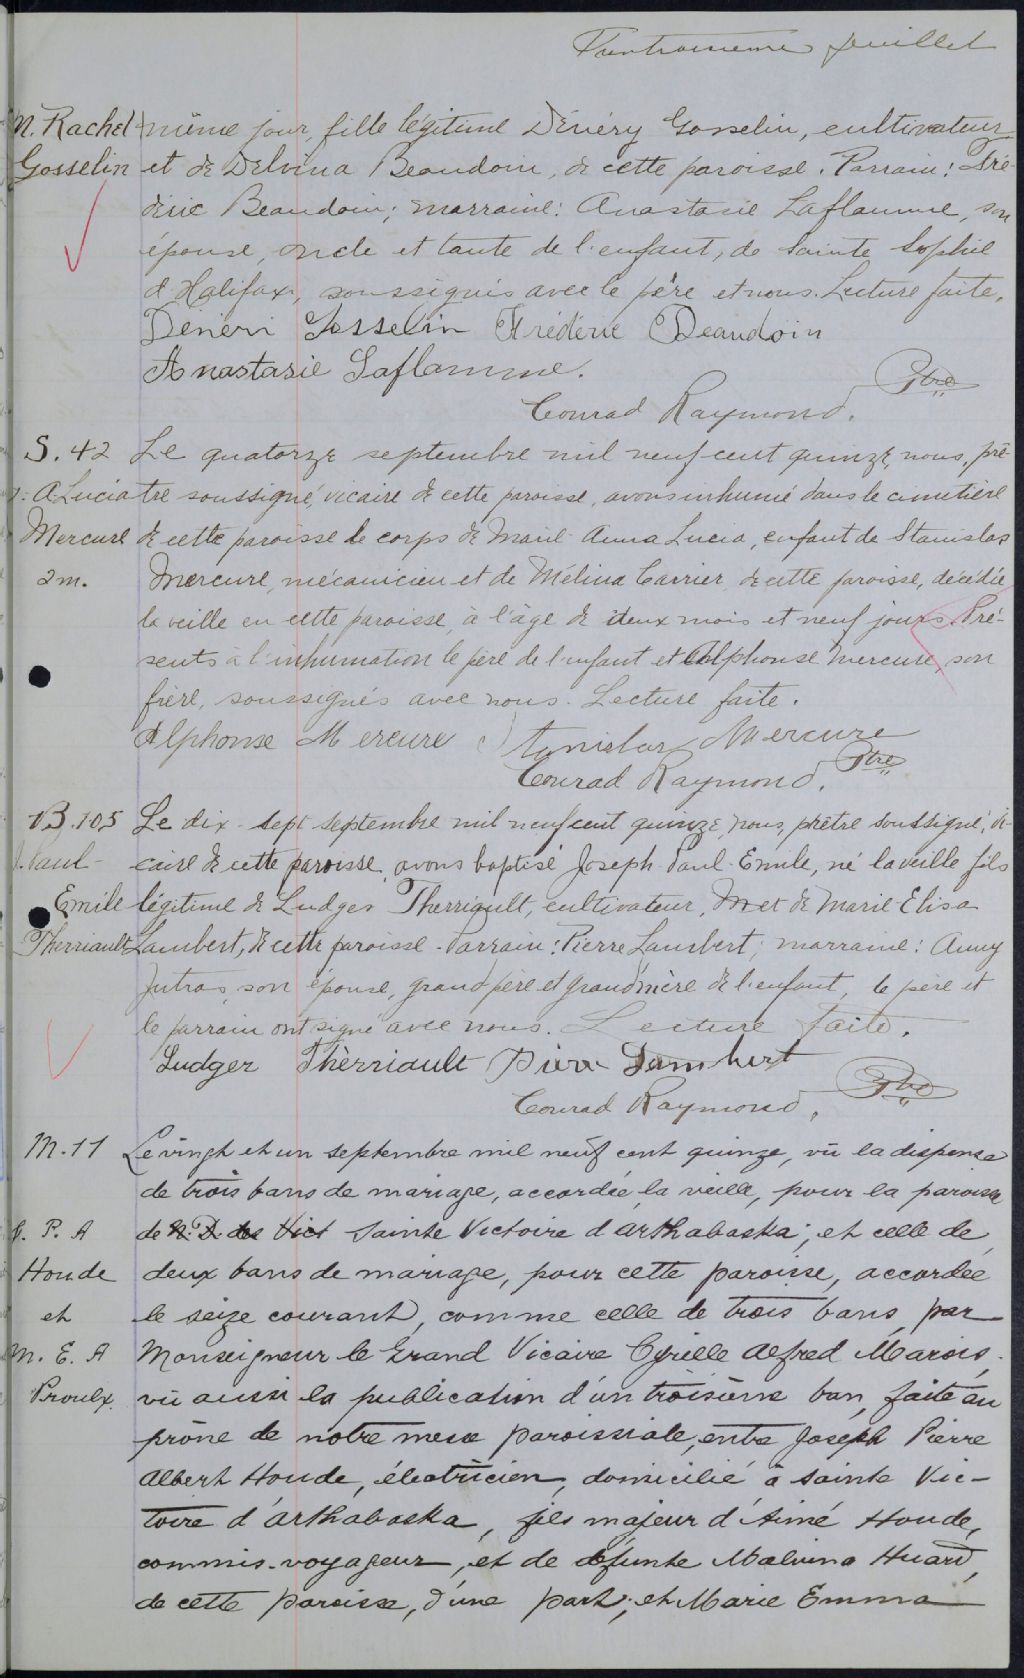 feuillet
M. Rachel même jour, fille légitime Dénéry Gosselin, cultivateur
Gosselin et de Delvina Beaudoin, de cette paroisse. Parrain: Fré-
déric Beaudoin; marraine: Anastasie Laflamme, son
épouse, oncle et tante de l'enfant, de Sainte Sophie
d'Halifax, soussignés avec le père et nous. Lecture faite.
Déneri Gosselin Frédéric Beaudoin
Anastasie Laflamme.
Conrad Raymond, Ptre
S. 42 Le quatorze septembre mil neuf cent quinze, nous, prê-
A. Lucia tre soussigné, vicaire de cette paroisse, avons inhumé dans le cimetière
Mercure de cette paroisse le corps de Marie Anna Lucia, enfant de Stanislas
2 m. Mercure, mécanicien et de Mélina Carrier, de cette paroisse, décédée
la veille en cette paroisse, à l'âge de deux mois et neuf jours. Pré-
sents à l'inhumation le père de l'enfant et Alphonse Mercure, son
frère, soussignés avec nous. Lecture faite.
Alphonse Mercure Stanislas Mercure
Conrad Raymond, Ptre
B. 105 Le dix-sept septembre mil neuf cent quinze, nous, prêtre soussigné, vi-
J. Paul- caire de cette paroisse, avons baptisé Joseph Paul-Emile, né la veille fils
Emile légitime de Ludger Therriault, cultivateur, et de Marie-Elisa
Therriault Lambert, de cette paroisse. Parrain: Pierre Lambert; marraine: Anny
Jutras, son épouse, grand père et grand'mère de l'enfant, le père et
le parrain ont signé avec nous. Lecture faite.
Ludger Thèrriault Pierre Lambert
Conrad Raymond, Ptre
M. 11 Le vingt et un septembre mil neuf cent quinze, vu la dispense
de trois bans de mariage, accordée la veille, pour la paroisse
J. P. A de N. D. des Vict Sainte Victoire d'Arthabaska; et celle de
Houde deux bans de mariage, pour cette paroisse, accordée
et le seize courant, comme celle de trois bans, par
M. E. A Monseigneur le Grand Vicaire Cyrille Alfred Marois,
Proulx. vu aussi la publication d'un troisième ban, faite au
prône de notre messe paroissiale, entre Joseph Pierre
Albert Houde, électricien, domicilié à Sainte Vic-
toire d'Arthabaska, fils majeur d'Aimé Houde,
commis-voyageur, et de défunte Malvina Huard,
de cette paroisse, d'une part; et Marie Emma